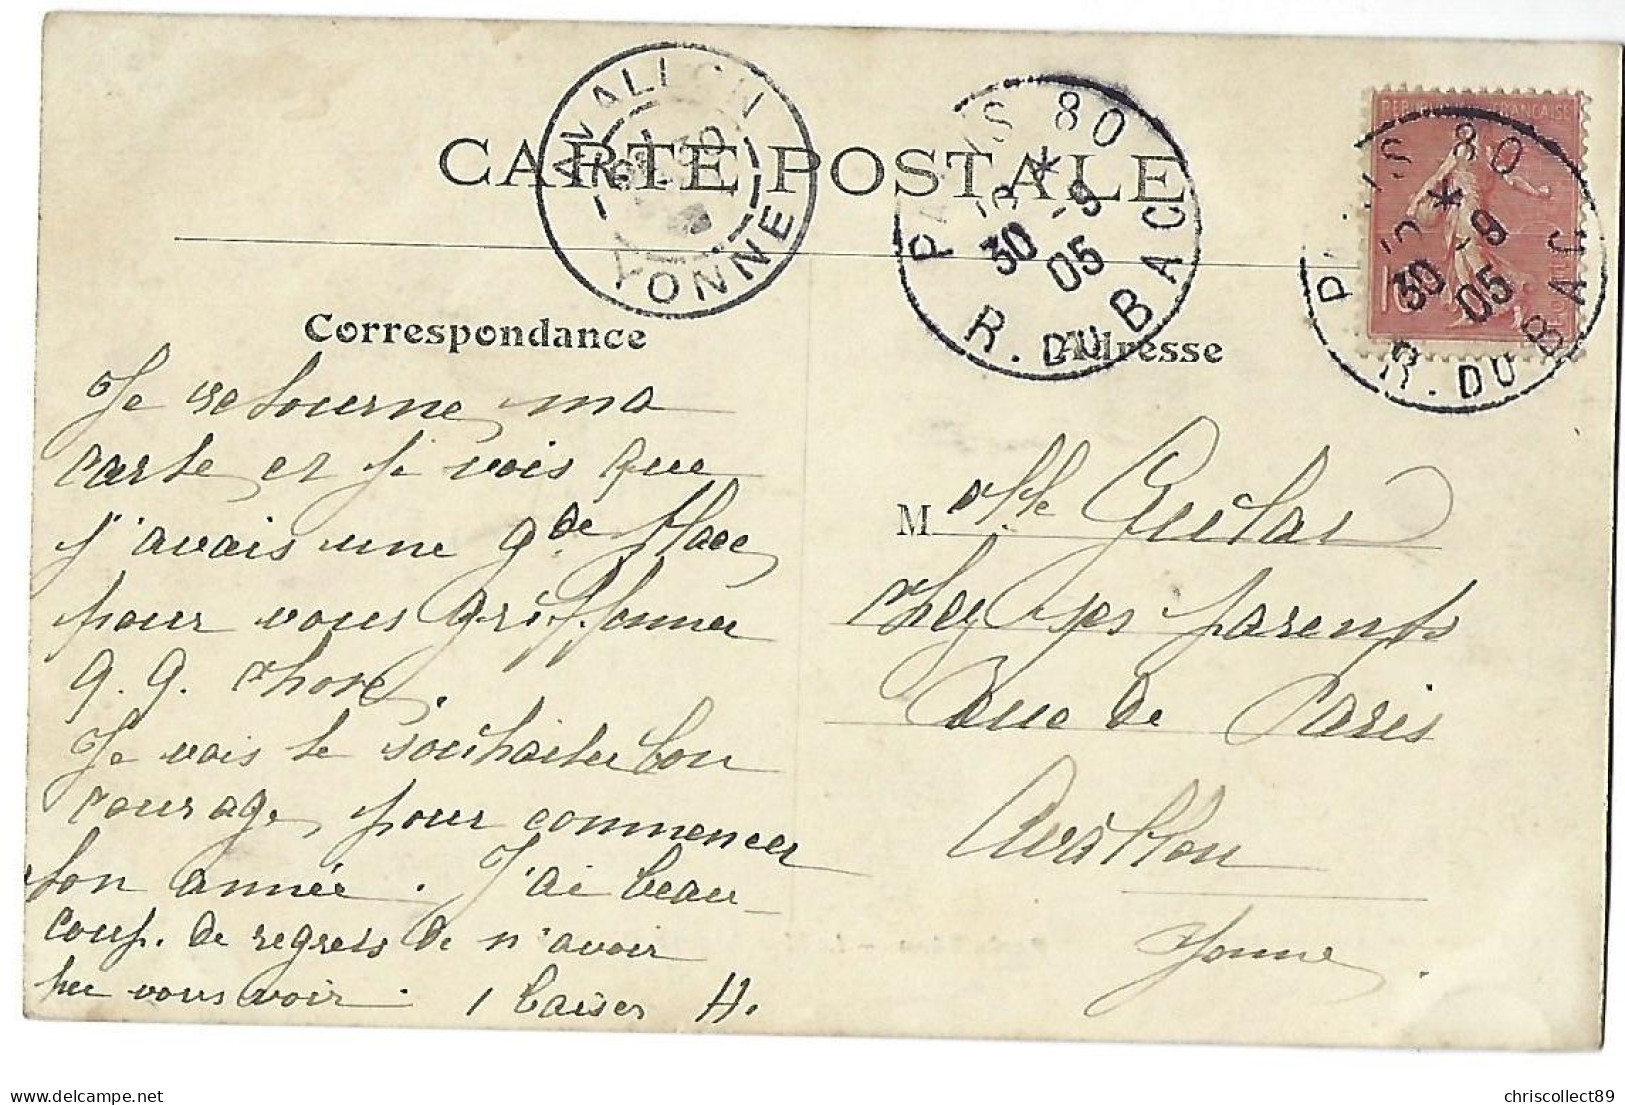 CARTE POSTALE
AVALLON
YONNE
PARIS 80
30 -9
05
R. DU BAC
REPUBLIQUE FRANCAISE
PARIS 80
30 -9
05
R. DU BAC
Correspondance
Je retourne ma
carte et je vois que
j'avais une gde place
pour vous griffonner
q. q. chose.
Je vais te souhaiter bon
courage, pour commencer
ton année. J'ai beau-
coup. de regrets de n'avoir
pu vous voir. 1 baiser H.
Adresse
M elle
chez ses parents
Rue de Paris
Avallon
Yonne.
chriscollect89